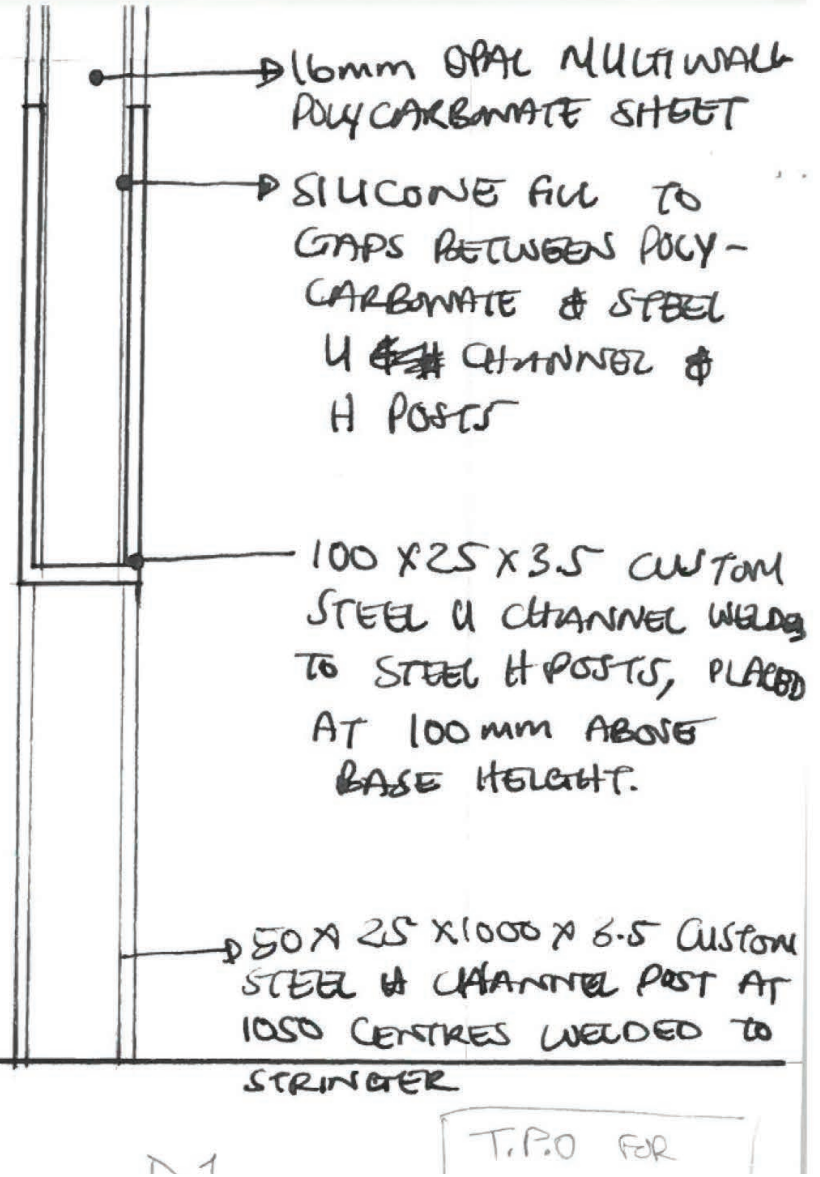 16mm OPAL MULTIWALL
POLYCARBONATE SHEET
SILICONE FILL TO
GAPS BETWEEN POLY-
CARBONATE & STEEL
U CHANNEL &
H POSTS
100 X 25 X 3.5 CUSTOM
STEEL U CHANNEL WELDED
TO STEEL H POSTS, PLACED
AT 100 mm ABOVE
BASE HEIGHT.
50 X 25 X 1000 X 6.5 CUSTOM
STEEL H CHANNEL POST AT
1050 CENTRES WELDED TO
STRINGER
T.P.O FOR